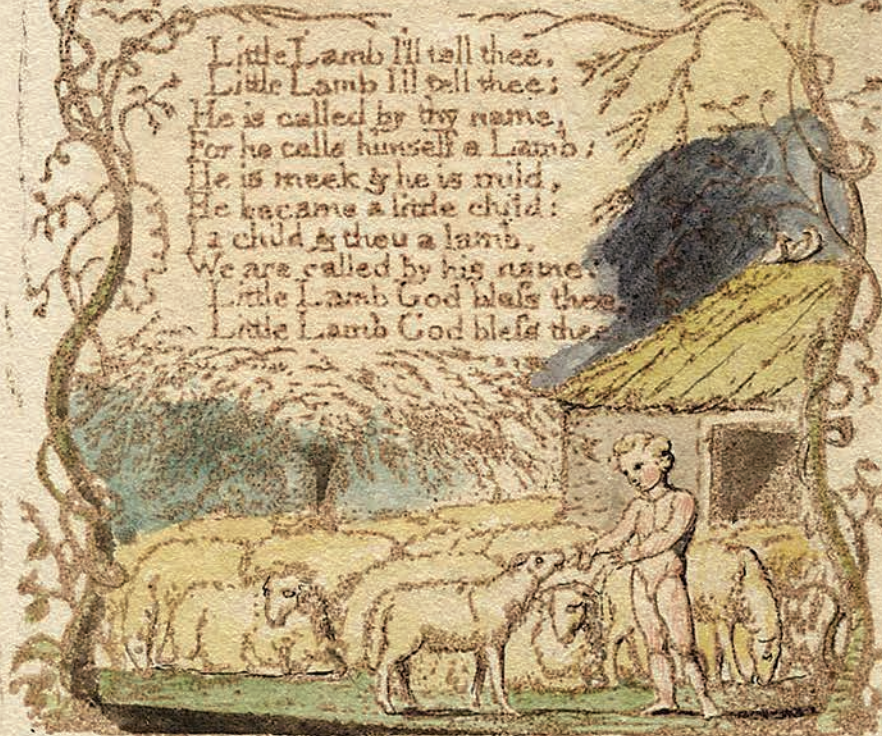 Little Lamb I'll tell thee,
Little Lamb I'll tell thee:
He is called by thy name,
For he calls himself a Lamb:
He is meek & he is mild,
He became a little child:
I a child & thou a lamb,
We are called by his name.
Little Lamb God bleſs thee.
Little Lamb God bleſs thee